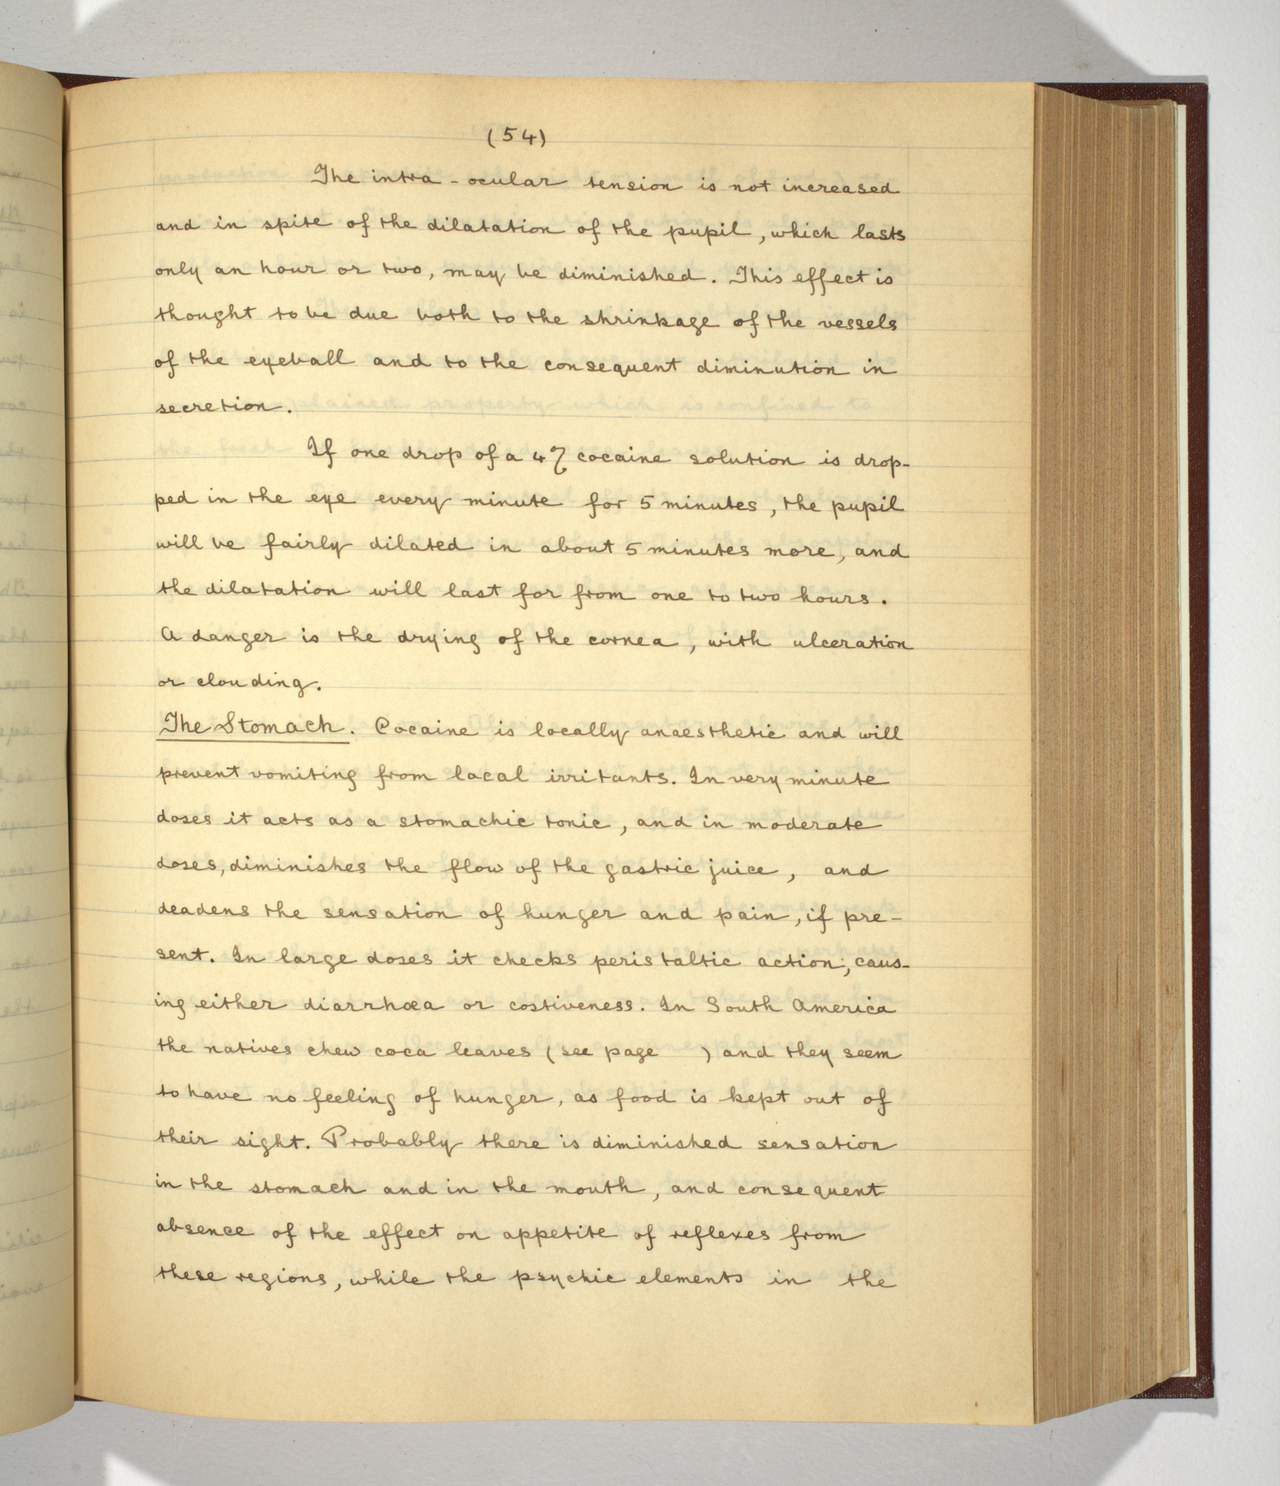 (54)
The intra-ocular tension is not increased
and in spite of the dilatation of the pupil, which lasts
only an hour or two, may be diminished. This effect is
thought to be due both to the shrinkage of the vessels
of the eyeball and to the consequent diminution in
secretion.
If one drop of a 4% cocaine solution is drop-
ped in the eye every minute for 5 minutes, the pupil
will be fairly dilated in about 5 minutes more, and
the dilatation will last for from one to two hours.
A danger is the drying of the cornea, with ulceration
or clouding.
The Stomach. Cocaine is locally anaesthetic and will
prevent vomiting from local irritants. In very minute
doses it acts as a stomachic tonic, and in moderate
doses, diminishes the flow of the gastric juice, and
deadens the sensation of hunger and pain, if pre-
sent. In large doses it checks peristaltic action, caus-
ing either diarrhœa or costiveness. In South America
the natives chew coca leaves (see page    ) and they seem
to have no feeling of hunger, as food is kept out of
their sight. Probably there is diminished sensation
in the stomach and in the mouth, and consequent
absence of the effect on appetite of reflexes from
these regions, while the psychic elements in the